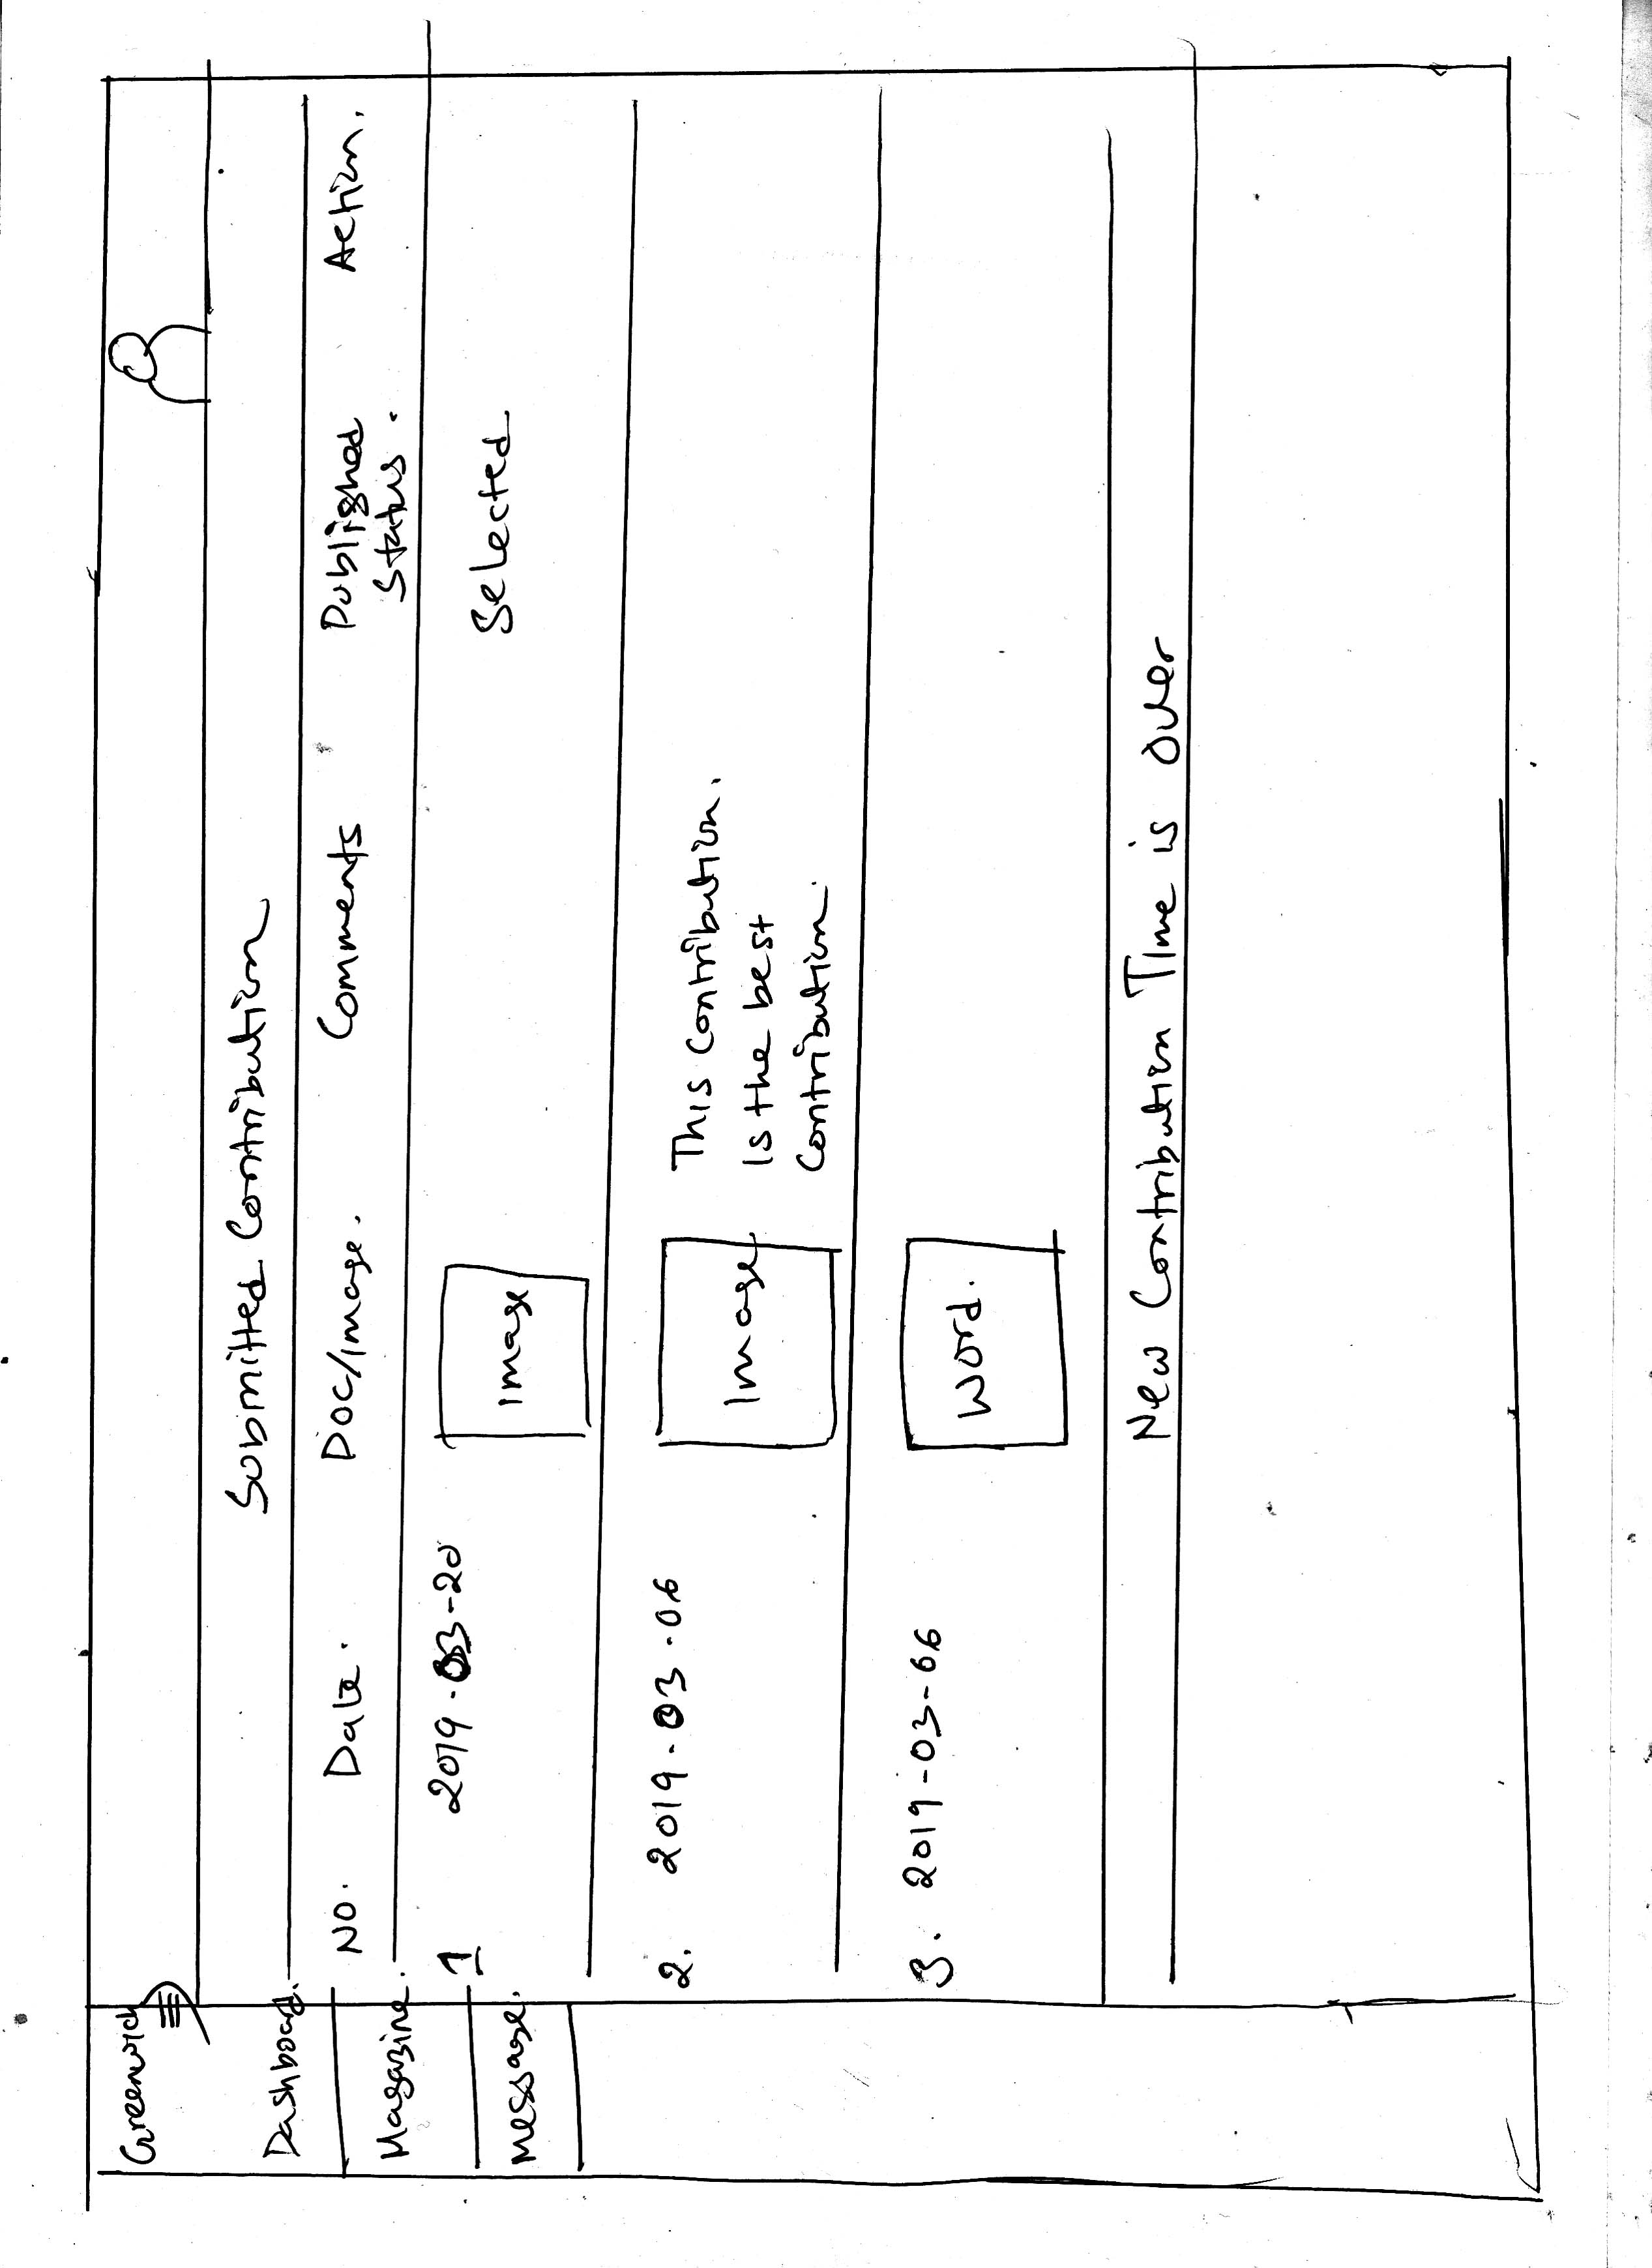 Greenwich
Dashboard.
Magazine.
Message.
Submitted Contribution
No. Date. Doc/image. Comments Published Status. Action.
1 2019-03-20 Image Selected
2. 2019-03-06 Image This Contribution.
Is the best
Contribution.
3. 2019-03-06 Word.
New Contribution Time is Over